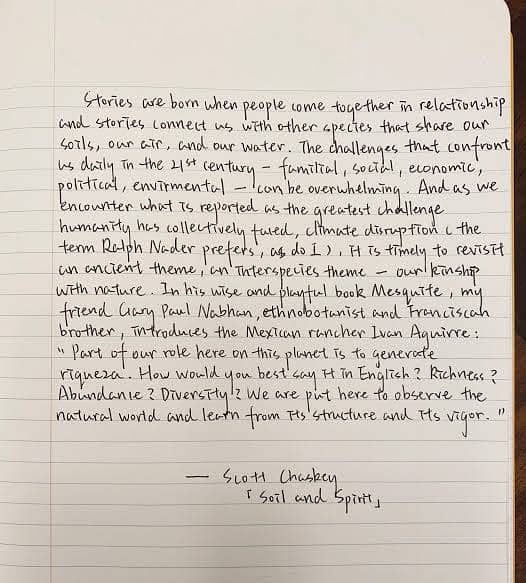 Stories are born when people come together in relationship
and stories connect us with other species that share our
soils, our air, and our water. The challenges that confront
us daily in the 21st century – familial, social, economic,
political, envirmental – can be overwhelming. And as we
encounter what is reported as the greatest challenge
humanity has collectively faced, climate disruption (the
term Ralph Nader prefers, as do I), it is timely to revisit
an ancient theme, an interspecies theme – our kinship
with nature. In his wise and playful book Mesquite, my
friend Gary Paul Nabhan, ethnobotanist and Franciscan
brother, introduces the Mexican rancher Ivan Aguirre:
"Part of our role here on this planet is to generate
riqueza. How would you best say it in English? Richness?
Abundance? Diversity? We are put here to observe the
natural world and learn from its structure and its vigor."
— Scott Chaskey
「Soil and Spirit」